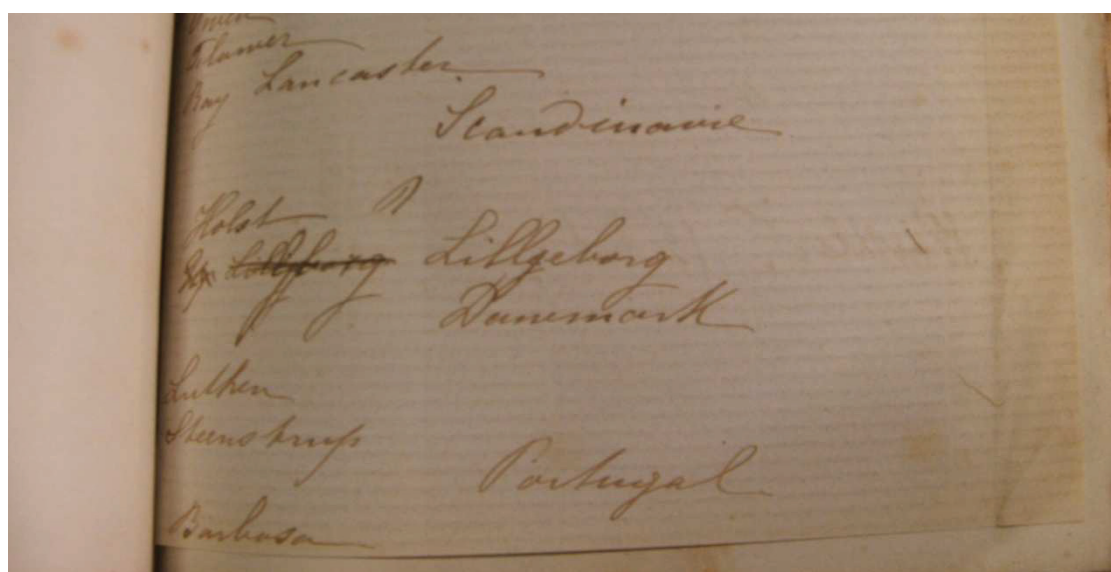 Flower
Ray Lancaster
Scandinavie
Holst
Lilljeborg
Danemark
Lutken
Steenstrup
Portugal
Barbosa